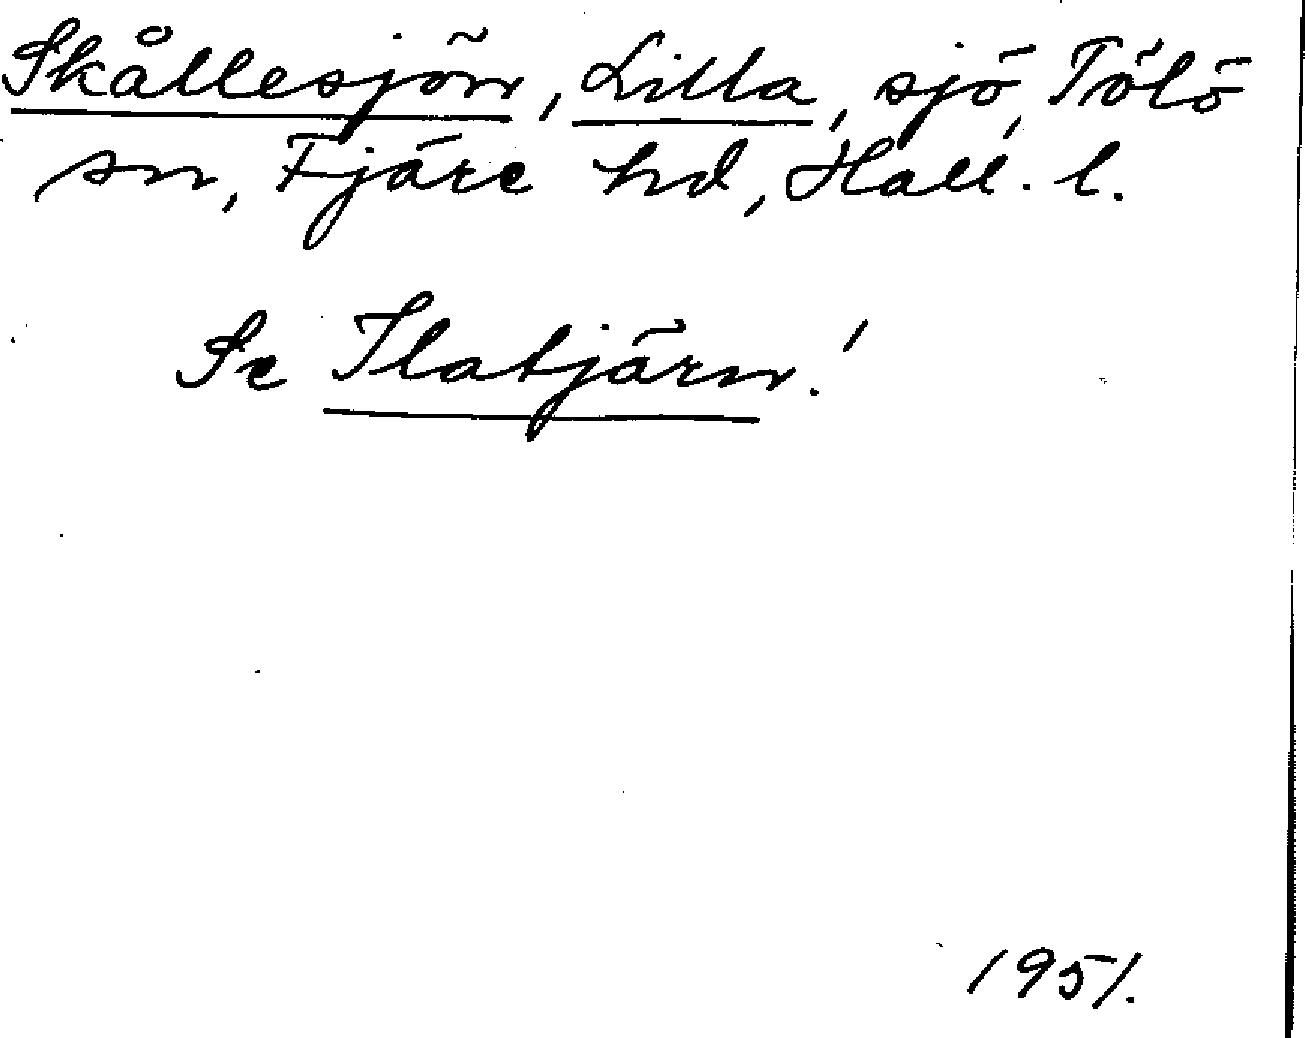 Skållesjön, Lilla, sjö, Tölö
sn, Fjäre hd, Hall. l.
Se Ilatjärn!
1951.